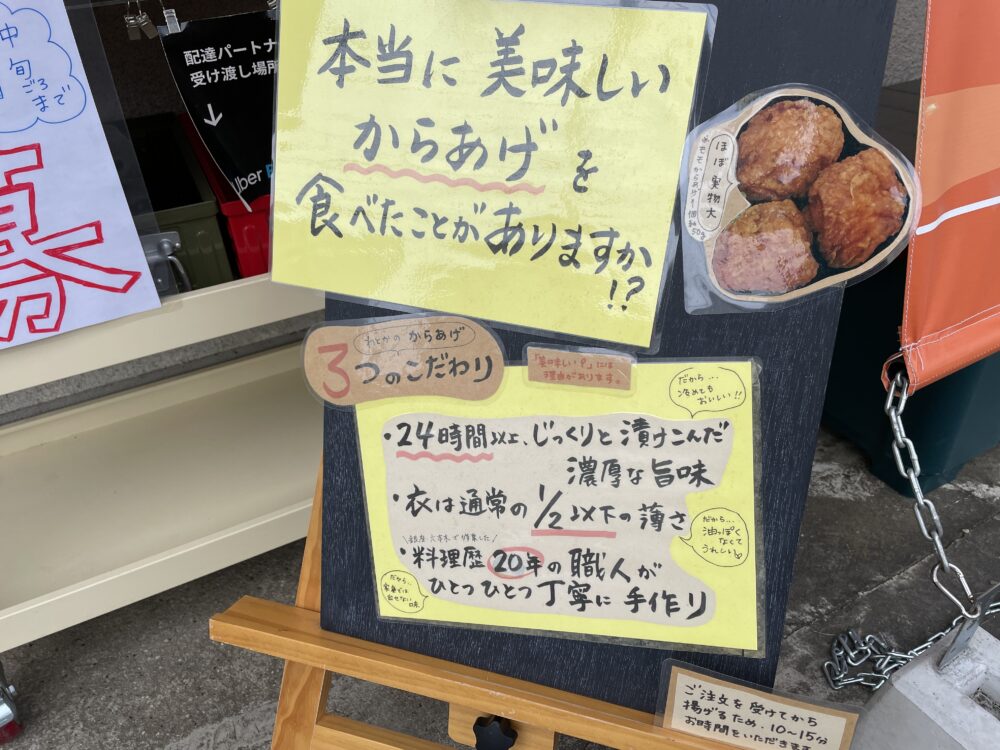 中
旬
ごろ
まで
募
配達パートナ
受け渡し場所
↓
Uber
本当に 美味しい
からあげ を
食べたことがありますか
!?
ほぼ実物大
からあげ1個約50g
わとかの からあげ
3つのこだわり
「美味しい!」には
理由があります。
だから…
冷めても
おいしい!!
・24時間以上、じっくりと漬けこんだ
濃厚な旨味
・衣は通常の1/2以下の薄さ
だから…
油っぽく
なくて
うれしい
\銀座・六本木で修業した/
・料理歴20年の職人が
ひとつひとつ丁寧に手作り
だから…
家庭では
出せない
味
ご注文を受けてから
揚げるため、10〜15分
お時間をいただきます